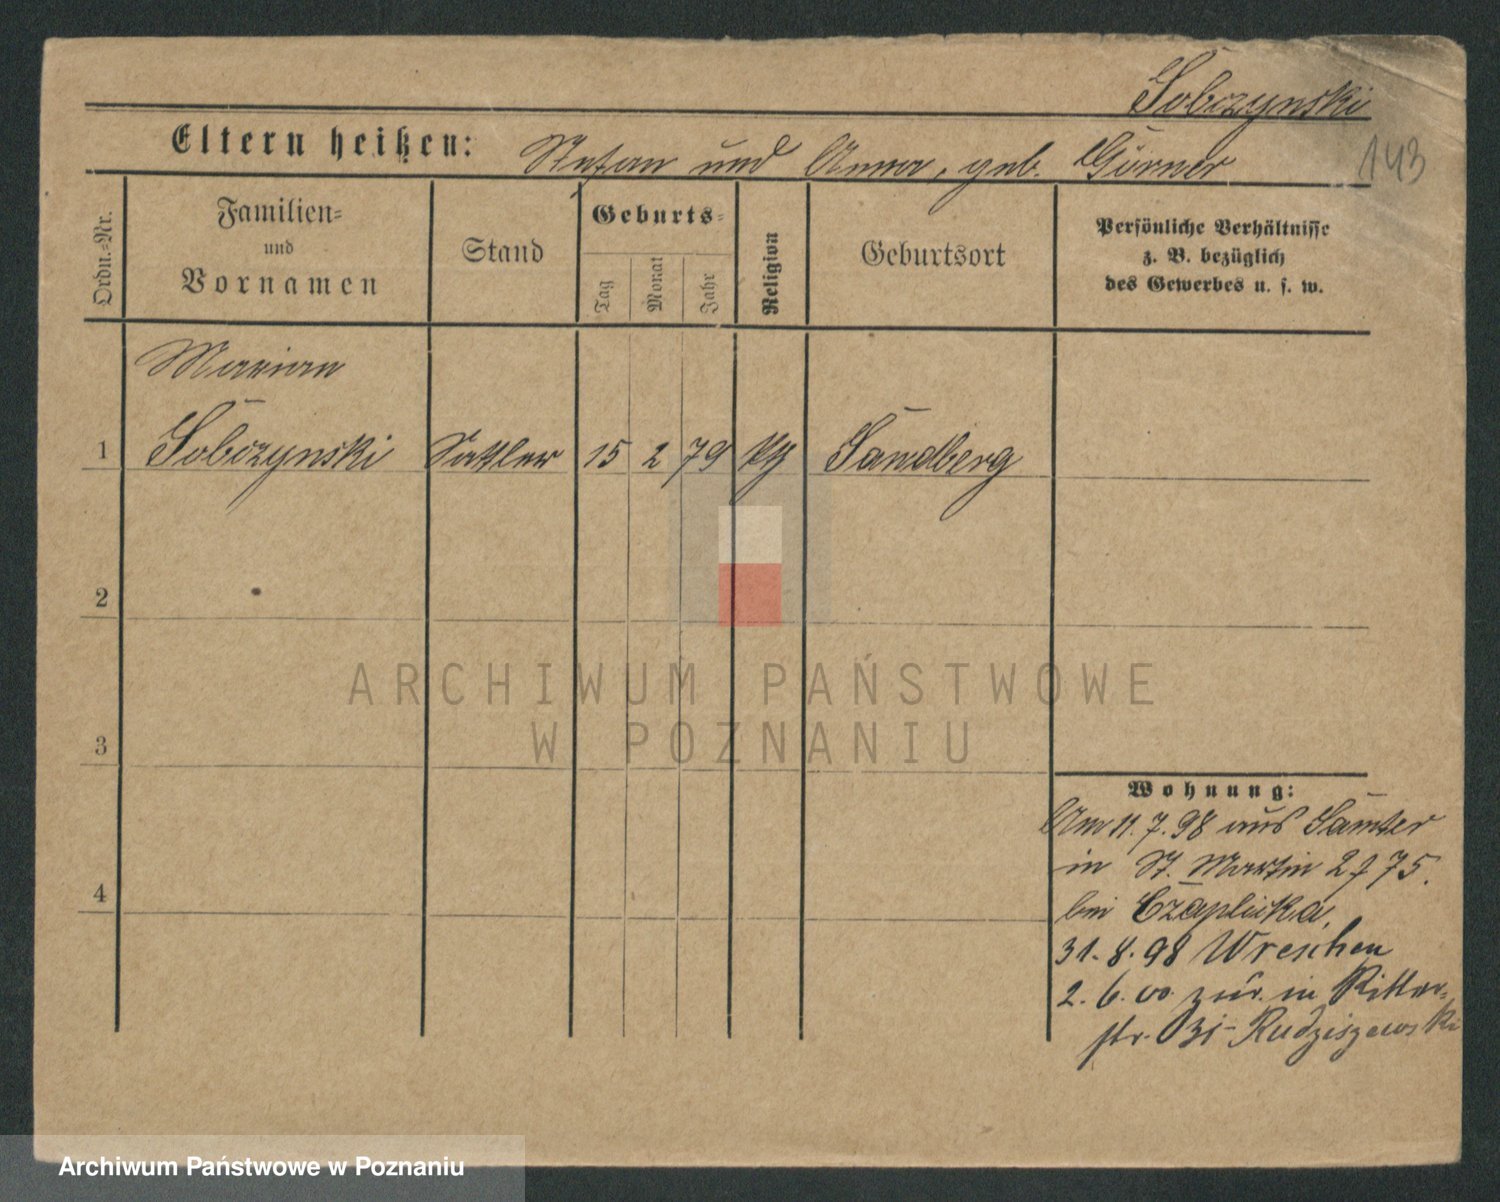 Sobczynski
Eltern heißen: Stefan und Anna, geb. Görner
143
Ordn.-Nr.
Familien- und Vornamen
Stand
Geburts-
Tag
Monat
Jahr
Religion
Geburtsort
Persönliche Verhältnisse
z. B. bezüglich
des Gewerbes u. s. w.
Marian
1 Sobczynski Sattler 15 2 79 Sandberg
2
3
4
Wohnung:
Am 11.7.98 aus Samter
in St. Martin 27 75.
bei Czaplicka,
31.8.98 Wreschen
2.6.00. zur. in Ritter-
str. Rudziszewski
ARCHIWUM PAŃSTWOWE
W POZNANIU
Archiwum Państwowe w Poznaniu